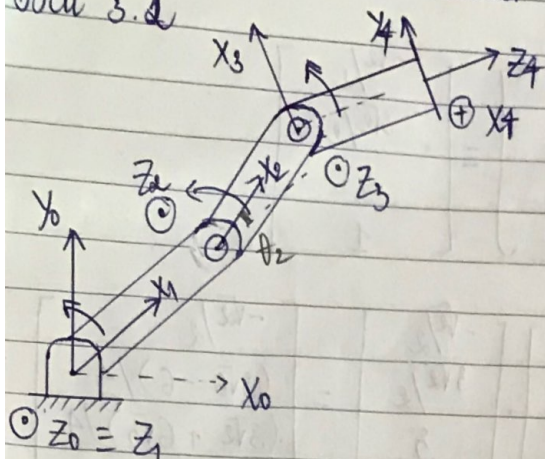 3.2
X3
Y4
Z4
X4
Z3
X2
Z2
θ2
Y0
X1
X0
Z0 ≡ Z1